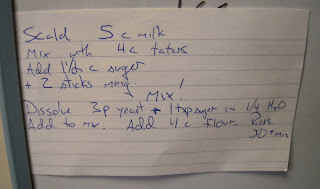 Scald 5 c milk
Mix with 4 c taters
Add 1 1/2 c sugar
+ 2 sticks marg.
Mix
Dissolve 3p yeast + 1 tsp sugar in 1/4 H2O
Add to mx. Add 4 c flour Rise
30+ min